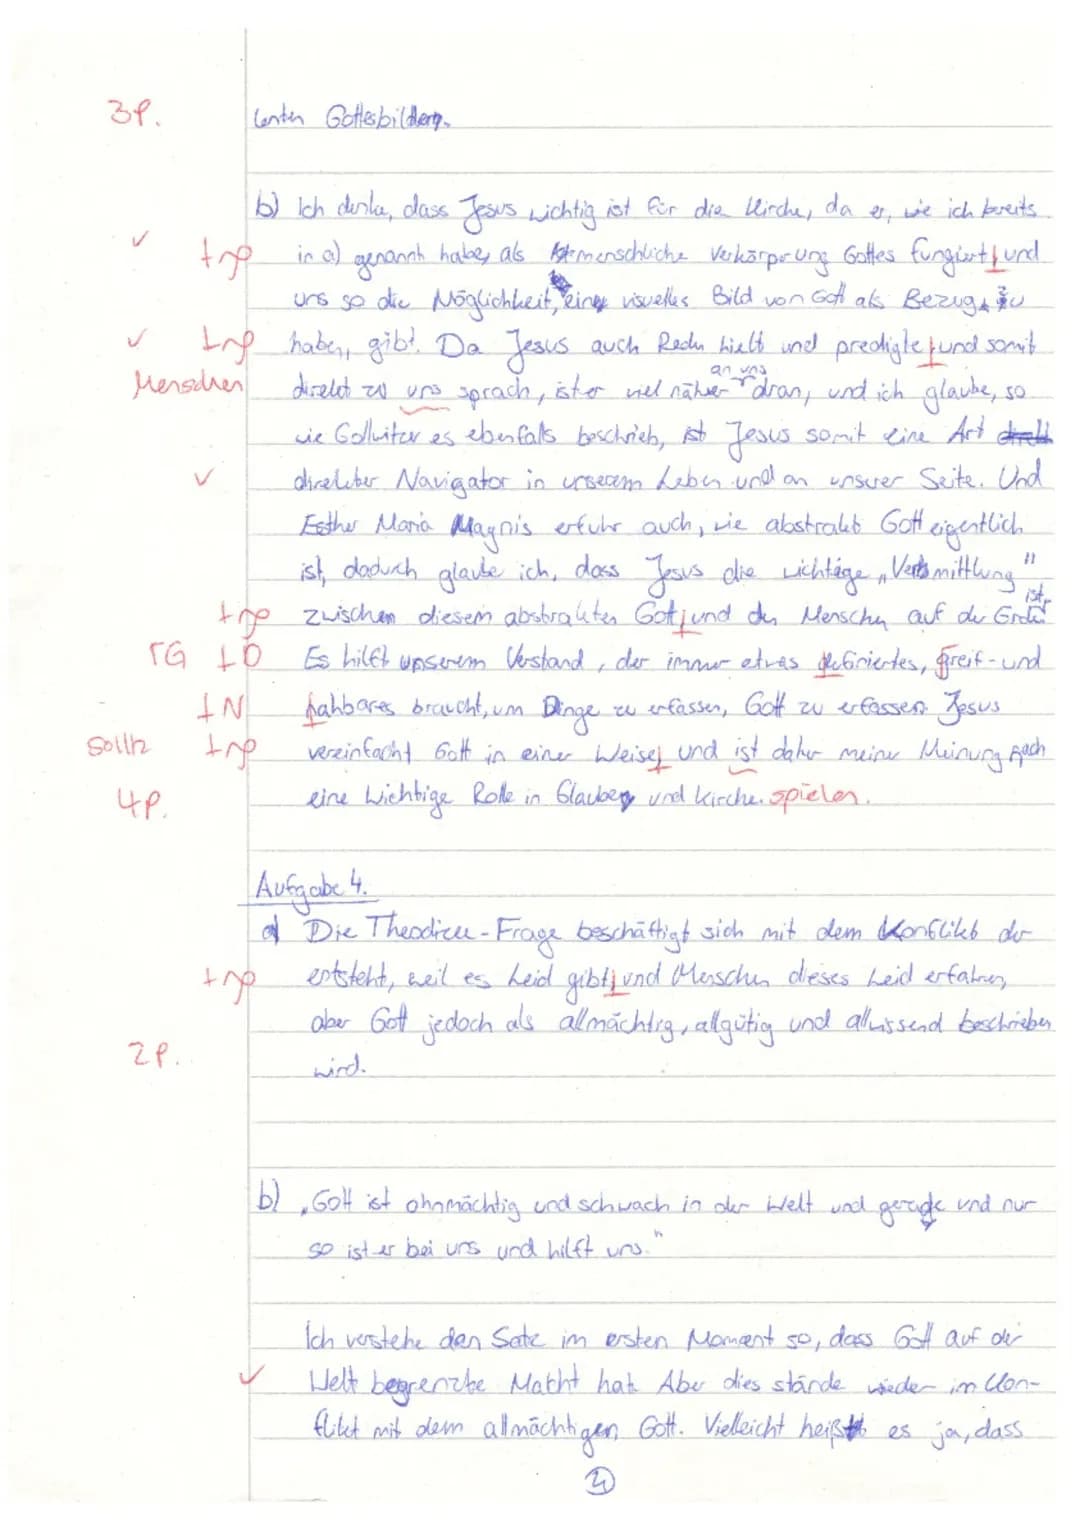 3P. lenten Gottesbildern.
b) Ich denke, dass Jesus wichtig ist für die Kirche, da er, wie ich bereits
✓ in a) genannt habe, als menschliche Verkörperung Gottes fungiert, und
uns so die Möglichkeit, ein visuelles Bild von Gott als Bezug zu
✓ haben, gibt. Da Jesus auch Reden hielt und predigte, und somit
an uns
Menschen direkt zu uns sprach, ist er viel näher dran, und ich glaube, so
wie Gollwitzer es ebenfalls beschrieb, ist Jesus somit eine Art direkt
✓ direkter Navigator in unserem Leben und an unserer Seite. Und
Esther Maria Magnis erfuhr auch, wie abstrakt Gott eigentlich
ist, dadurch glaube ich, dass Jesus die wichtige „Vermittlung"
zwischen diesem abstrakten Gott, und den Menschen auf der Erde ist.
rG Es hilft unserem Verstand, der immer etwas definiertes, greif- und
N fahbares braucht, um Dinge zu erfassen, Gott zu erfassen. Jesus
sollte vereinfacht Gott in einer Weise, und ist daher meiner Meinung nach
4P. eine wichtige Rolle in Glauben und Kirche. spielen.
Aufgabe 4.
a) Die Theodizee-Frage beschäftigt sich mit dem Konflikt der
entsteht, weil es Leid gibt, und Menschen dieses Leid erfahren,
aber Gott jedoch als allmächtig, allgütig und allwissend beschrieben
2P. wird.
b) „Gott ist ohnmächtig und schwach in der Welt und gerade und nur
so ist er bei uns und hilft uns."
Ich verstehe den Satz im ersten Moment so, dass Gott auf der
✓ Welt begrenzte Macht hat. Aber dies stände wieder im Kon-
flikt mit dem allmächtigen Gott. Vielleicht heißt es ja, dass
4